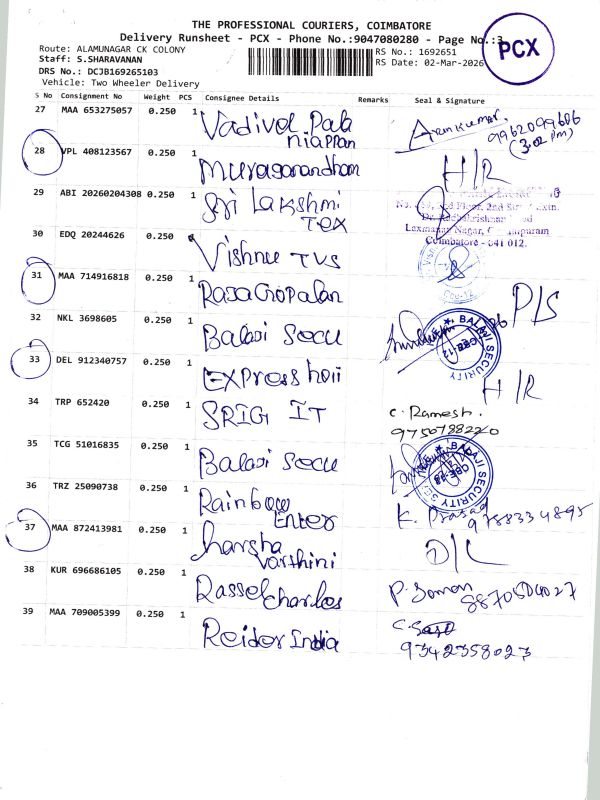 THE PROFESSIONAL COURIERS, COIMBATORE
Delivery Runsheet - PCX - Phone No.:9047080280 - Page No.:3
PCX
Route: ALAMUNAGAR CK COLONY
RS No.: 1692651
Staff: S.SHARAVANAN
RS Date: 02-Mar-2026
DRS No.: DCJB169265103
Vehicle: Two Wheeler Delivery
S No Consignment No Weight PCS Consignee Details Remarks Seal & Signature
27 MAA 653275057 0.250 1 Vadivel Pala
niappan
Arunkumar,
9962099686
(3.02 Pm)
28 VPL 408123567 0.250 1 Muraganandham H/R
29 ABI 20260204308 0.250 1 Sri Lakshmi
Tex
2nd
Laxmanan Nagar,
Coimbatore - 641 012.
30 EDQ 20244626 0.250 Vishnu TVS
31 MAA 714916818 0.250 1 RajaGopalan D/S
32 NKL 3698605 0.250 1 Balaji Secu
BALAJI SECURITY
CBE-12
33 DEL 912340757 0.250 1 Express H/R
34 TRP 652420 0.250 1 SRIG IT C. Ramesh.
9750788220
35 TCG 51016835 0.250 1 Balaji Secu
BALAJI SECURITY
36 TRZ 25090738 0.250 1 Rainbow
Enter
K. Prasad
9788334895
37 MAA 872413981 0.250 1 harsha
varthini
D/L
38 KUR 696686105 0.250 1 Rassel
Charles
P. Soman
39 MAA 709005399 0.250 1 Reider India C.
9342358023